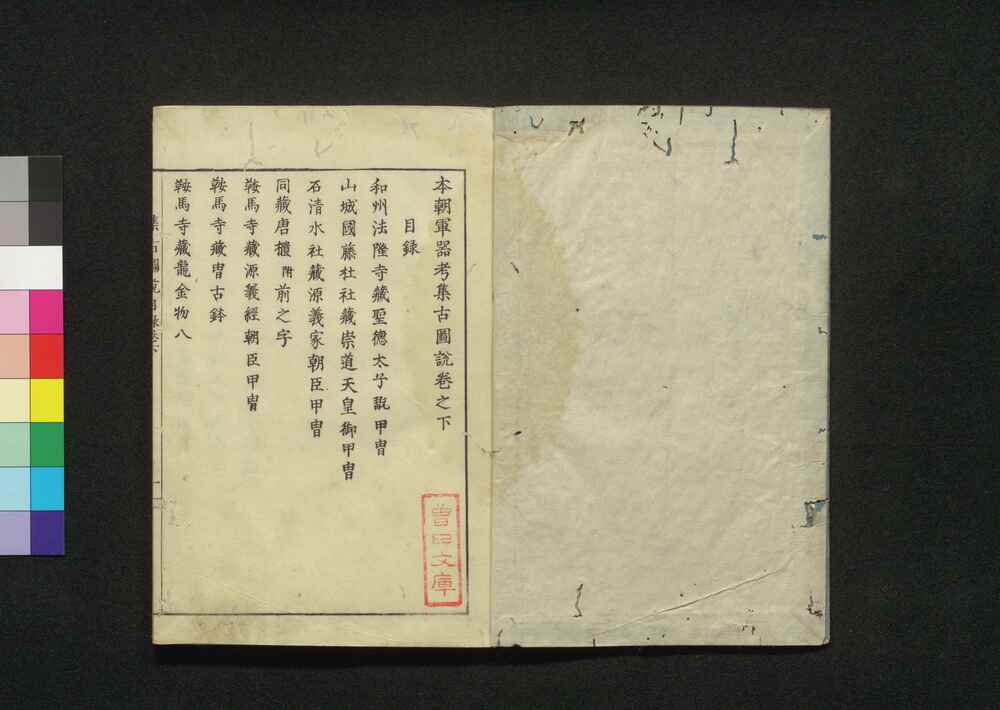 本朝軍器考集古圖說卷之下
目録
和州法隆寺藏聖德太子甲冑
山城國藤杜社藏崇道天皇御甲冑
石清水社藏源義家朝臣甲冑
同藏唐櫃附前之字
鞍馬寺藏源義經朝臣甲冑
鞍馬寺藏冑古鉢
鞍馬寺藏龍金物八
曾田文庫